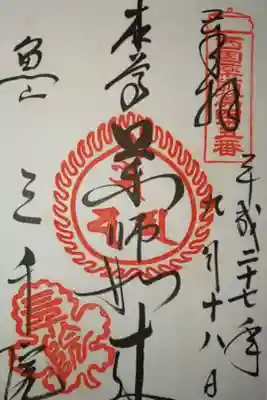 奉拝
平成二十七年
九月十八日
本尊
薬師如来
魚山
三千院